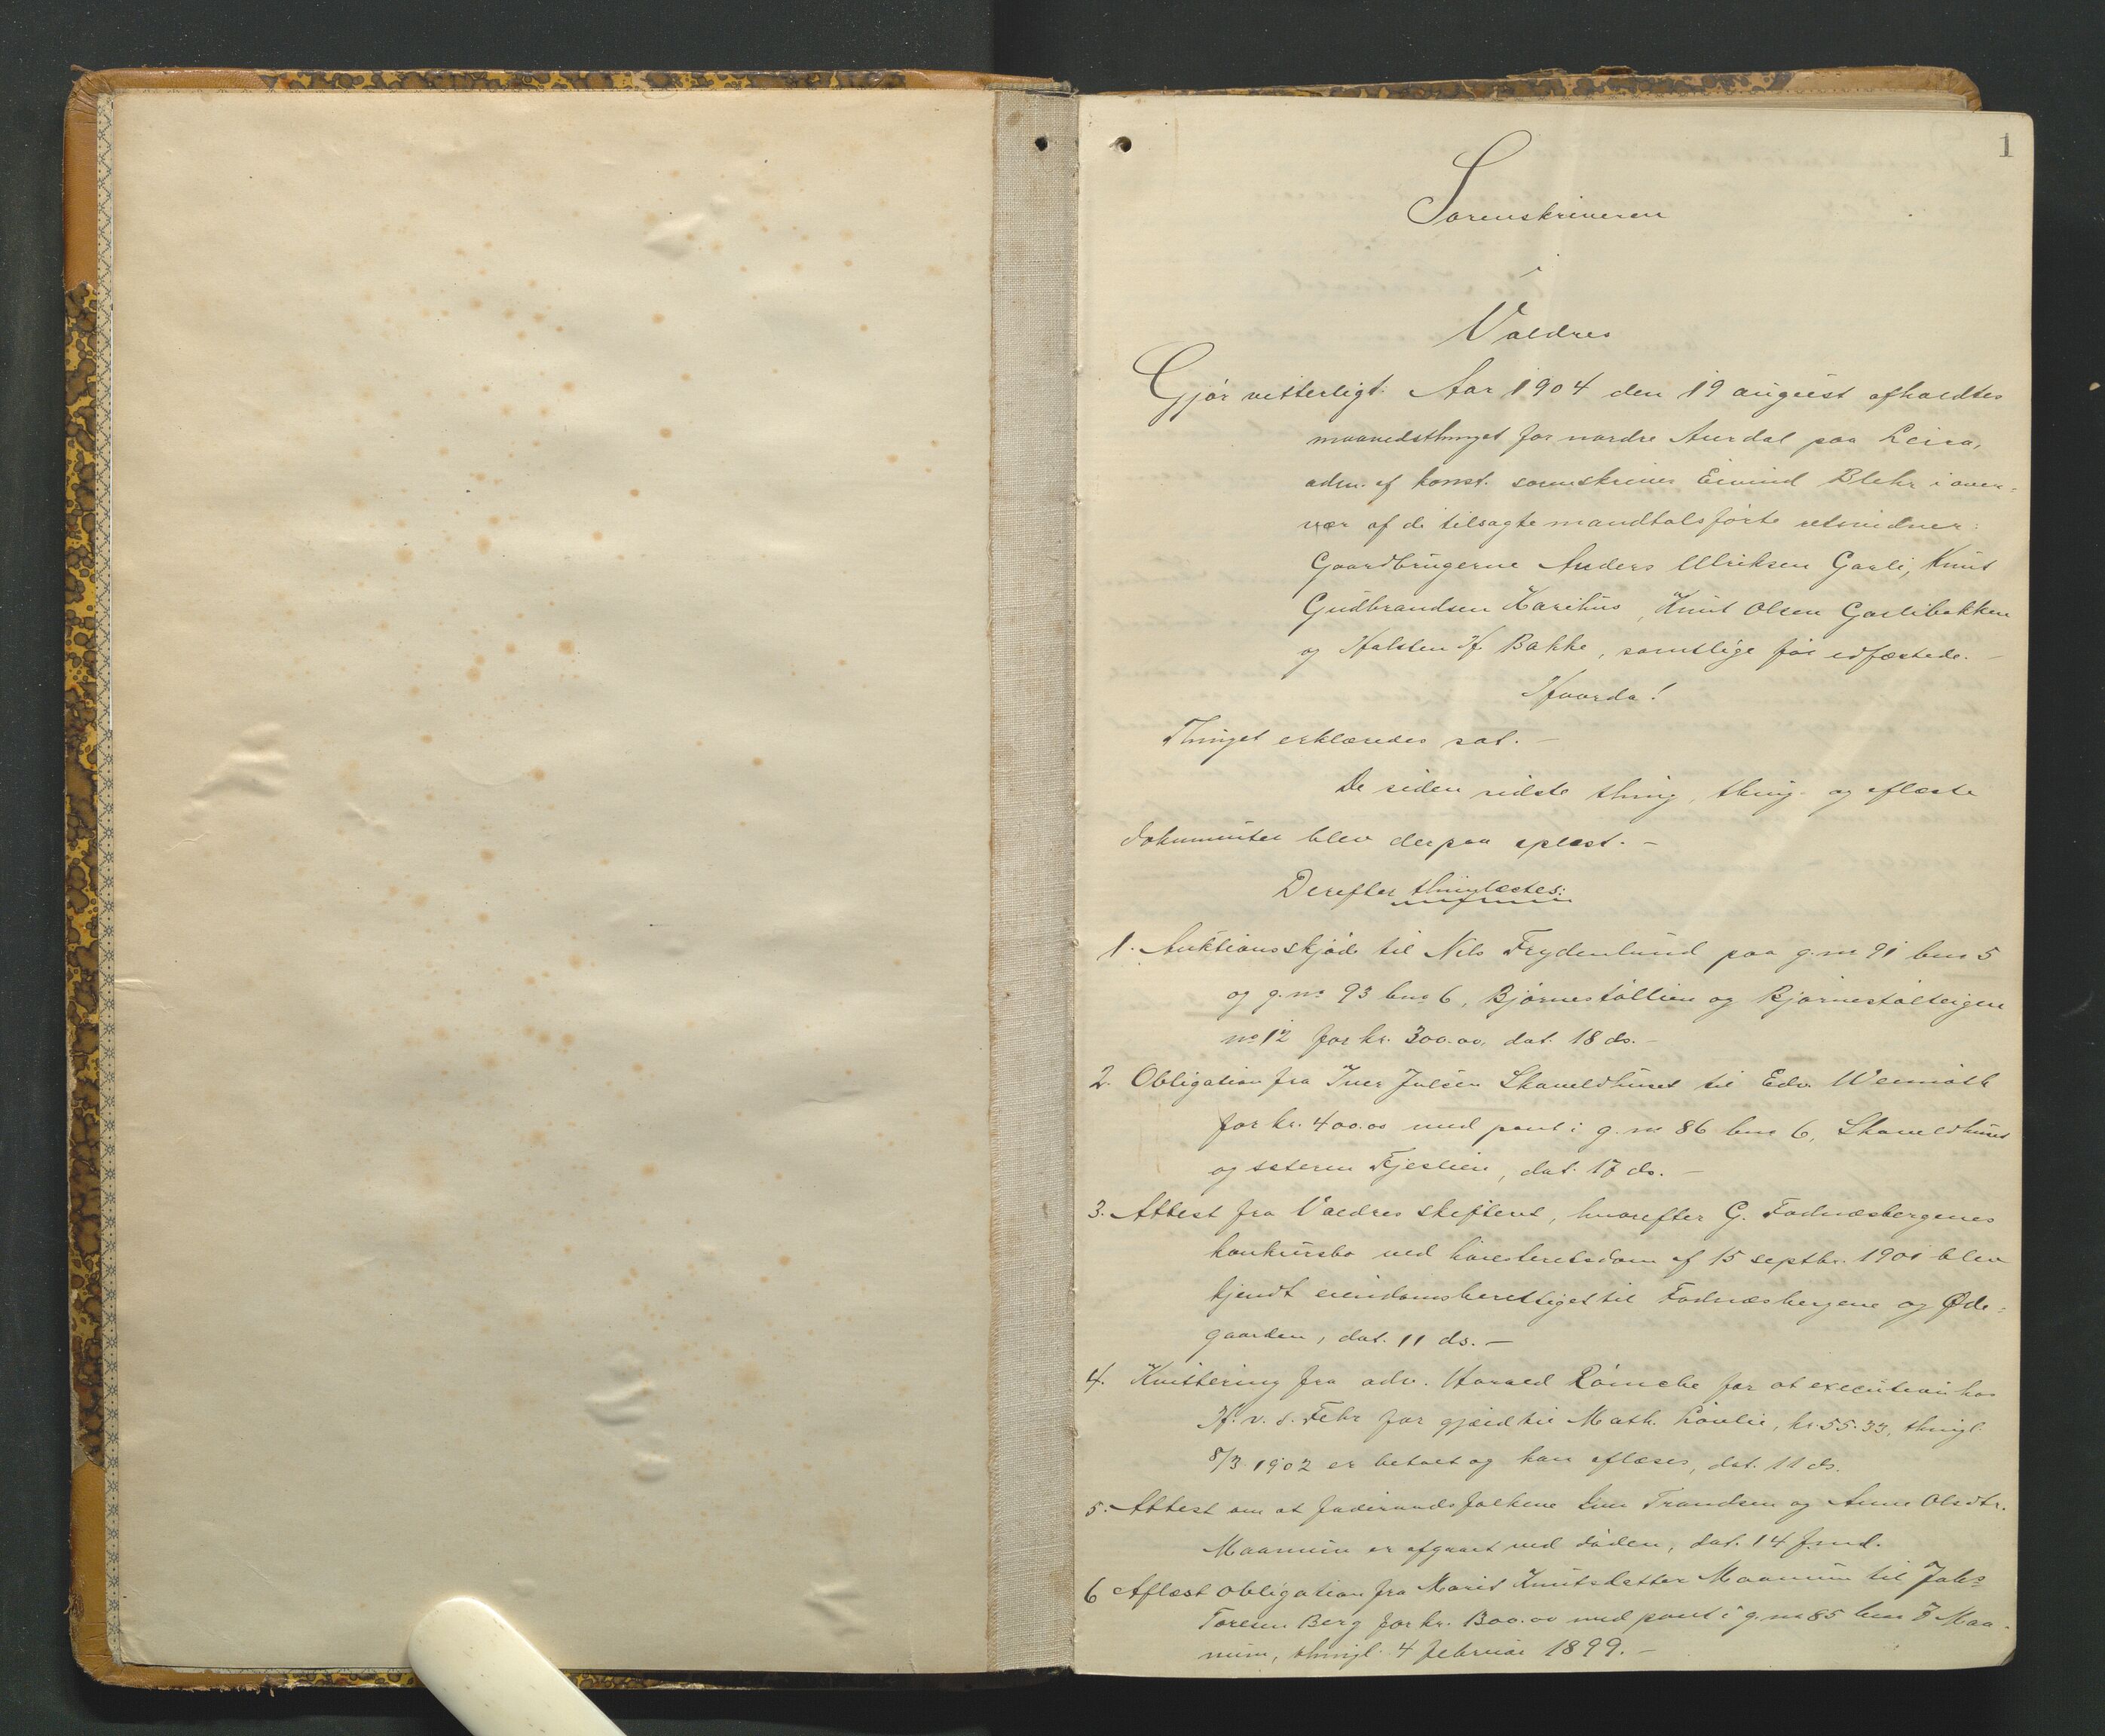 1
Sorenskriveren
i
Valdres
Gjör vitterligt: Aar 1904 den 19 august afholdtes
maanedsthinget for nordre Aurdal paa Leira,
adm. af konst. sorenskriver Eivind Blehr i over-
vær af de tilsagte mandtalsførte retsvidner:
Gaardbrugerne Anders Ulriksen Garli, Knut
Gudbrandsen Karihus, Knut Olsen Garlibakken
og Halsten H. Bakke, samtlige før edfæstede. –
Hvorda!
Thinget erklæredes sat. –
De siden sidste thing, thing- og aflæste
dokumenter blev derpaa oplæst. –
Derefter thinglæstes:
1. Auktionsskjöde til Nils Frydenlund paa g.no 91 bno 5
og g.no 93 bno 6, Bjørnestøllien og Bjørnestølteigen
no 12 for kr. 300.00, dat. 18 ds. –
2. Obligation fra Iver Julsen Skaveldhuset til Edv. Wennöth
for kr. 400.00 med pant i g.no 86 bno 6, Skaveldhuset
og sæteren Fjeslien, dat. 17 ds. –
3. Attest fra Valdres skifteret, hvorefter G. Fodnæsbergenes
konkursbo ved høiesteretsdom af 15 septbr. 1901 blev
kjendt eiendomsberettiget til Fodnæsbergene og Øde-
gaarden, dat. 11 ds. –
4. Kvittering fra adv. Harald Römcke for at execution hos
H. v. s. Fehr for gjæld til Math. Lövlie, kr. 55.33, thingl.
8/3 1902 er betalt og kan aflæses, dat. 11 ds.
5. Attest om at föderaadsfolkene Trondsen og Anne Olsdtr.
Maanum er afgaaet ved döden, dat. 14 f.md.
6 Aflæst obligation fra Marit Knutsdatter Maanum til Johs
Toresen Berg for kr. 1300.00 med pant i g.no 85 bno 7 Maa-
num, thingl. 4 februar 1899. –